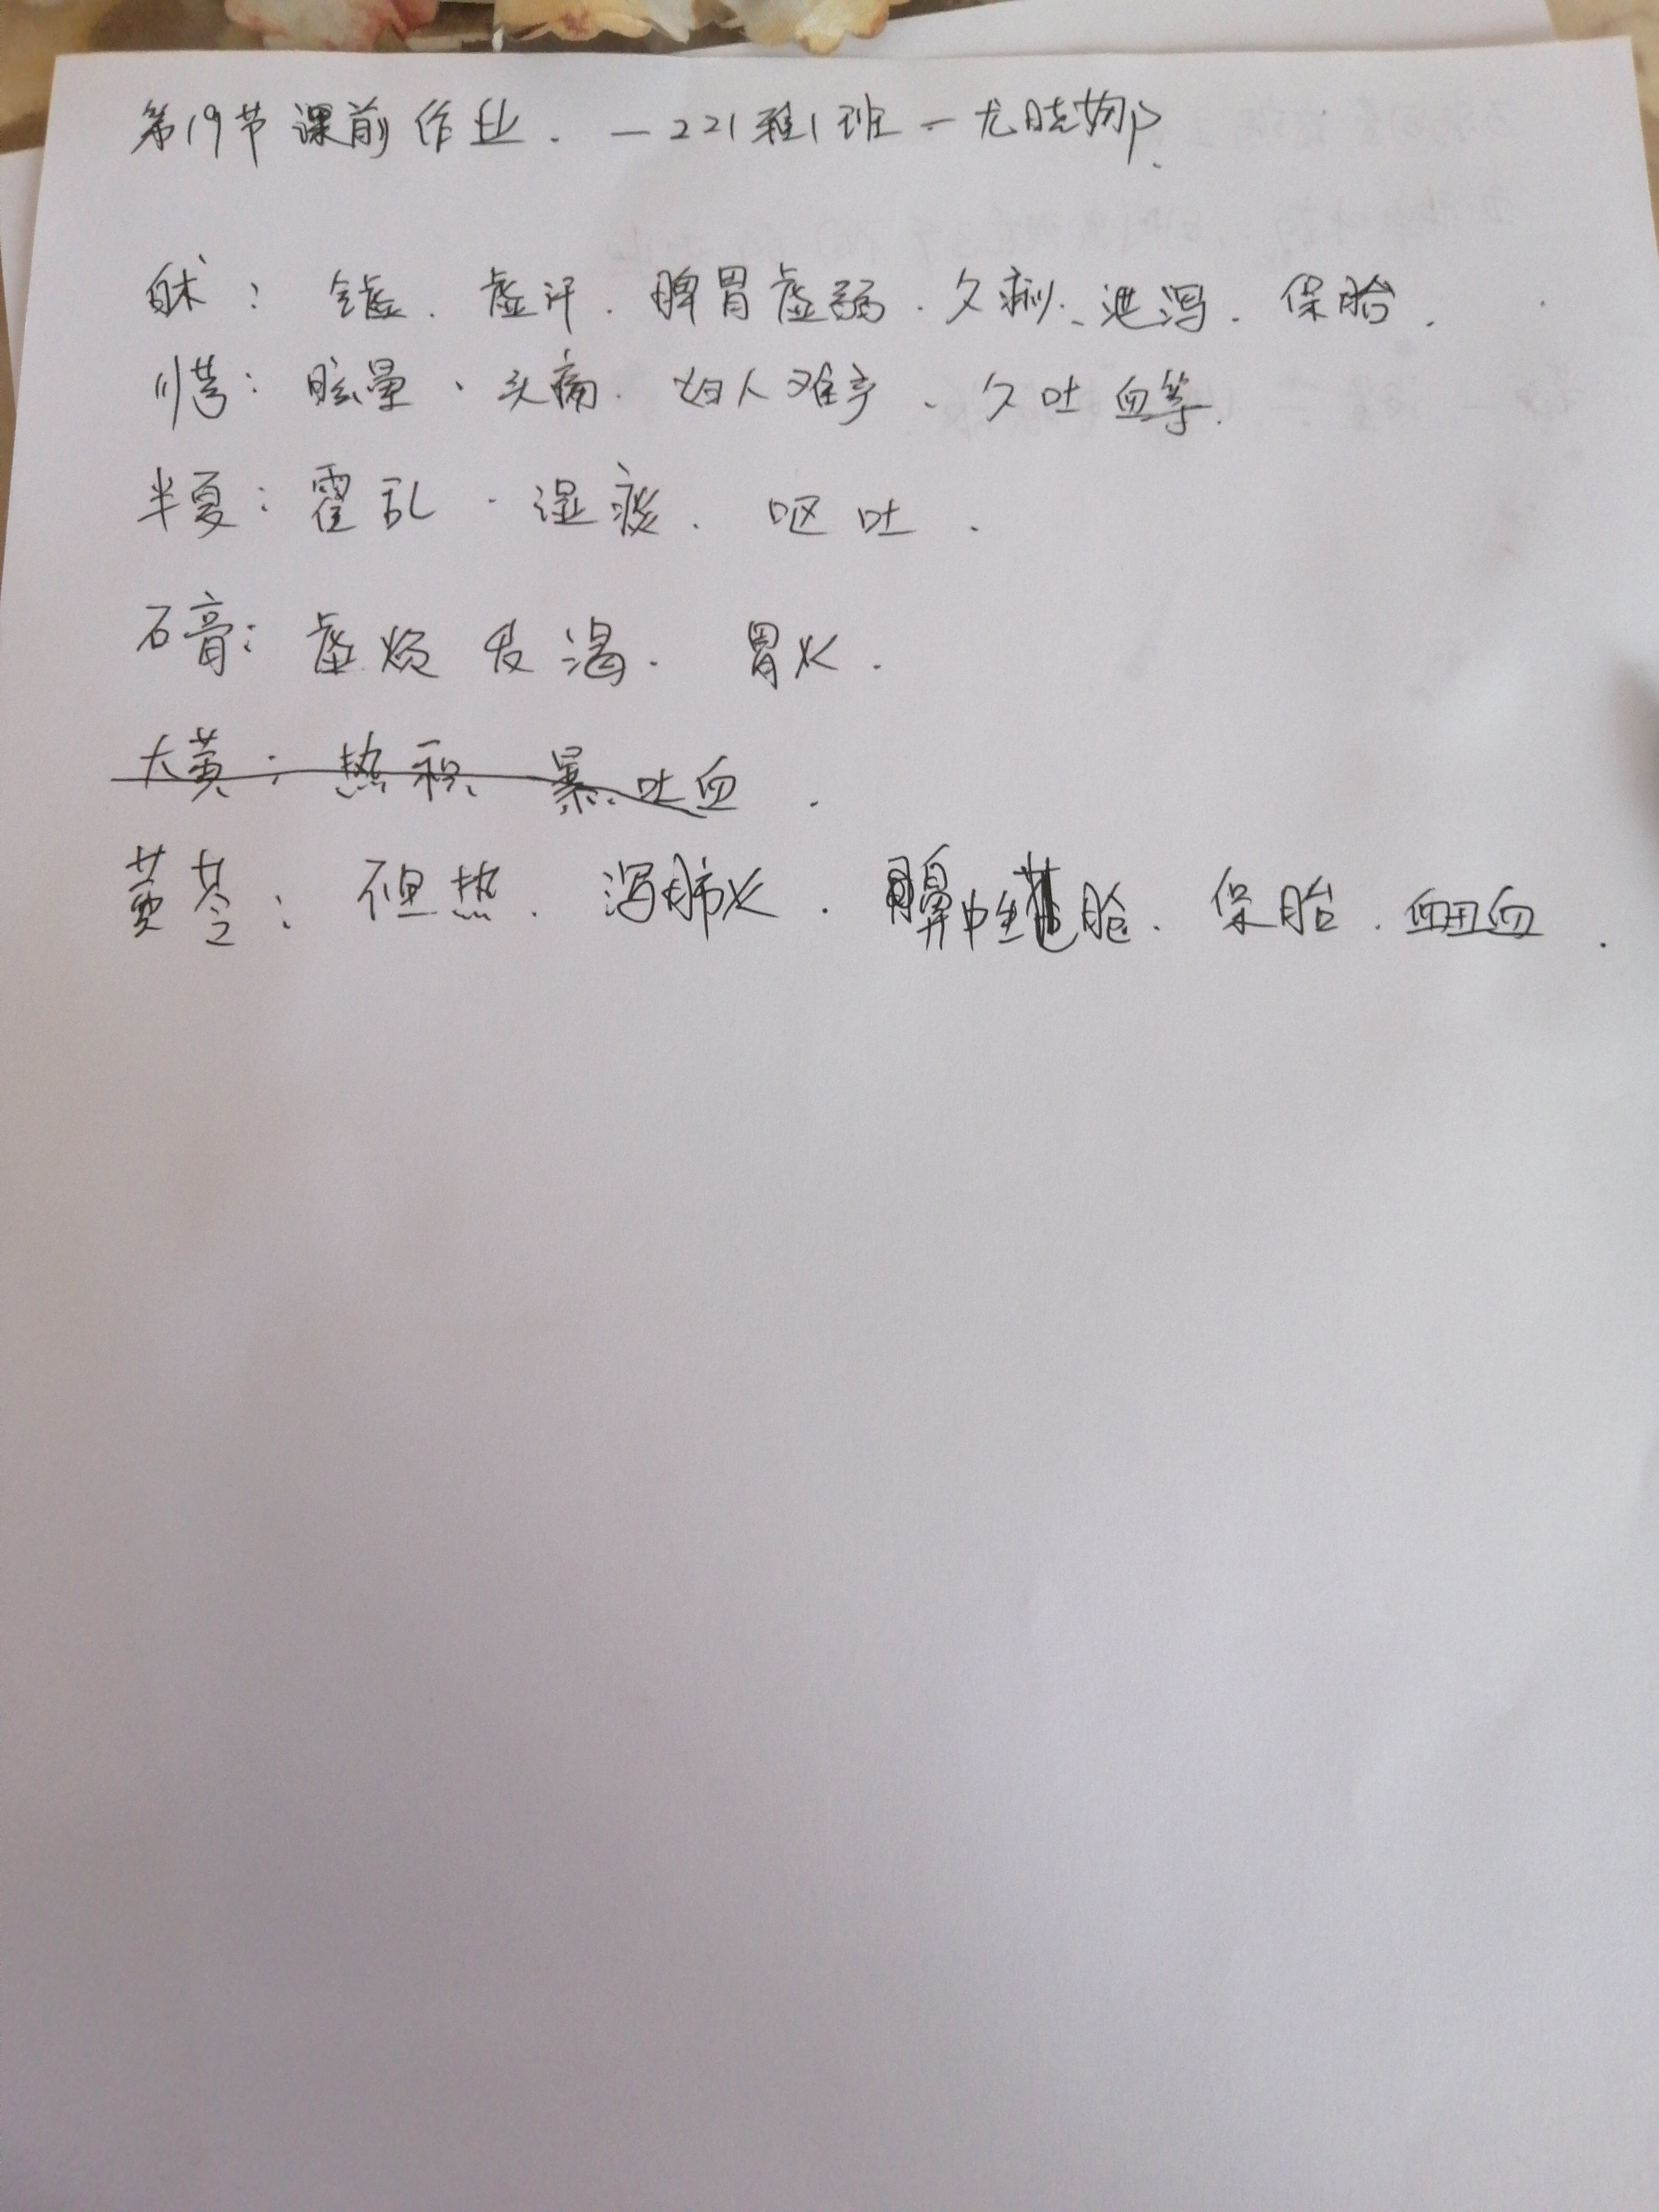 第19节课前作业.—221雅1班—尤晓娜.
白术:气虚.虚汗.脾胃虚弱.久痢、泄泻.保胎.
川芎:眩晕、头痛.妇人难产、久吐血等.
半夏:霍乱.湿痰.呕吐.
石膏:虚烦发渴.胃火.
大黄:热积 暴吐血.
黄芩:但热.泻肺火.鼻中生疮.保胎.血